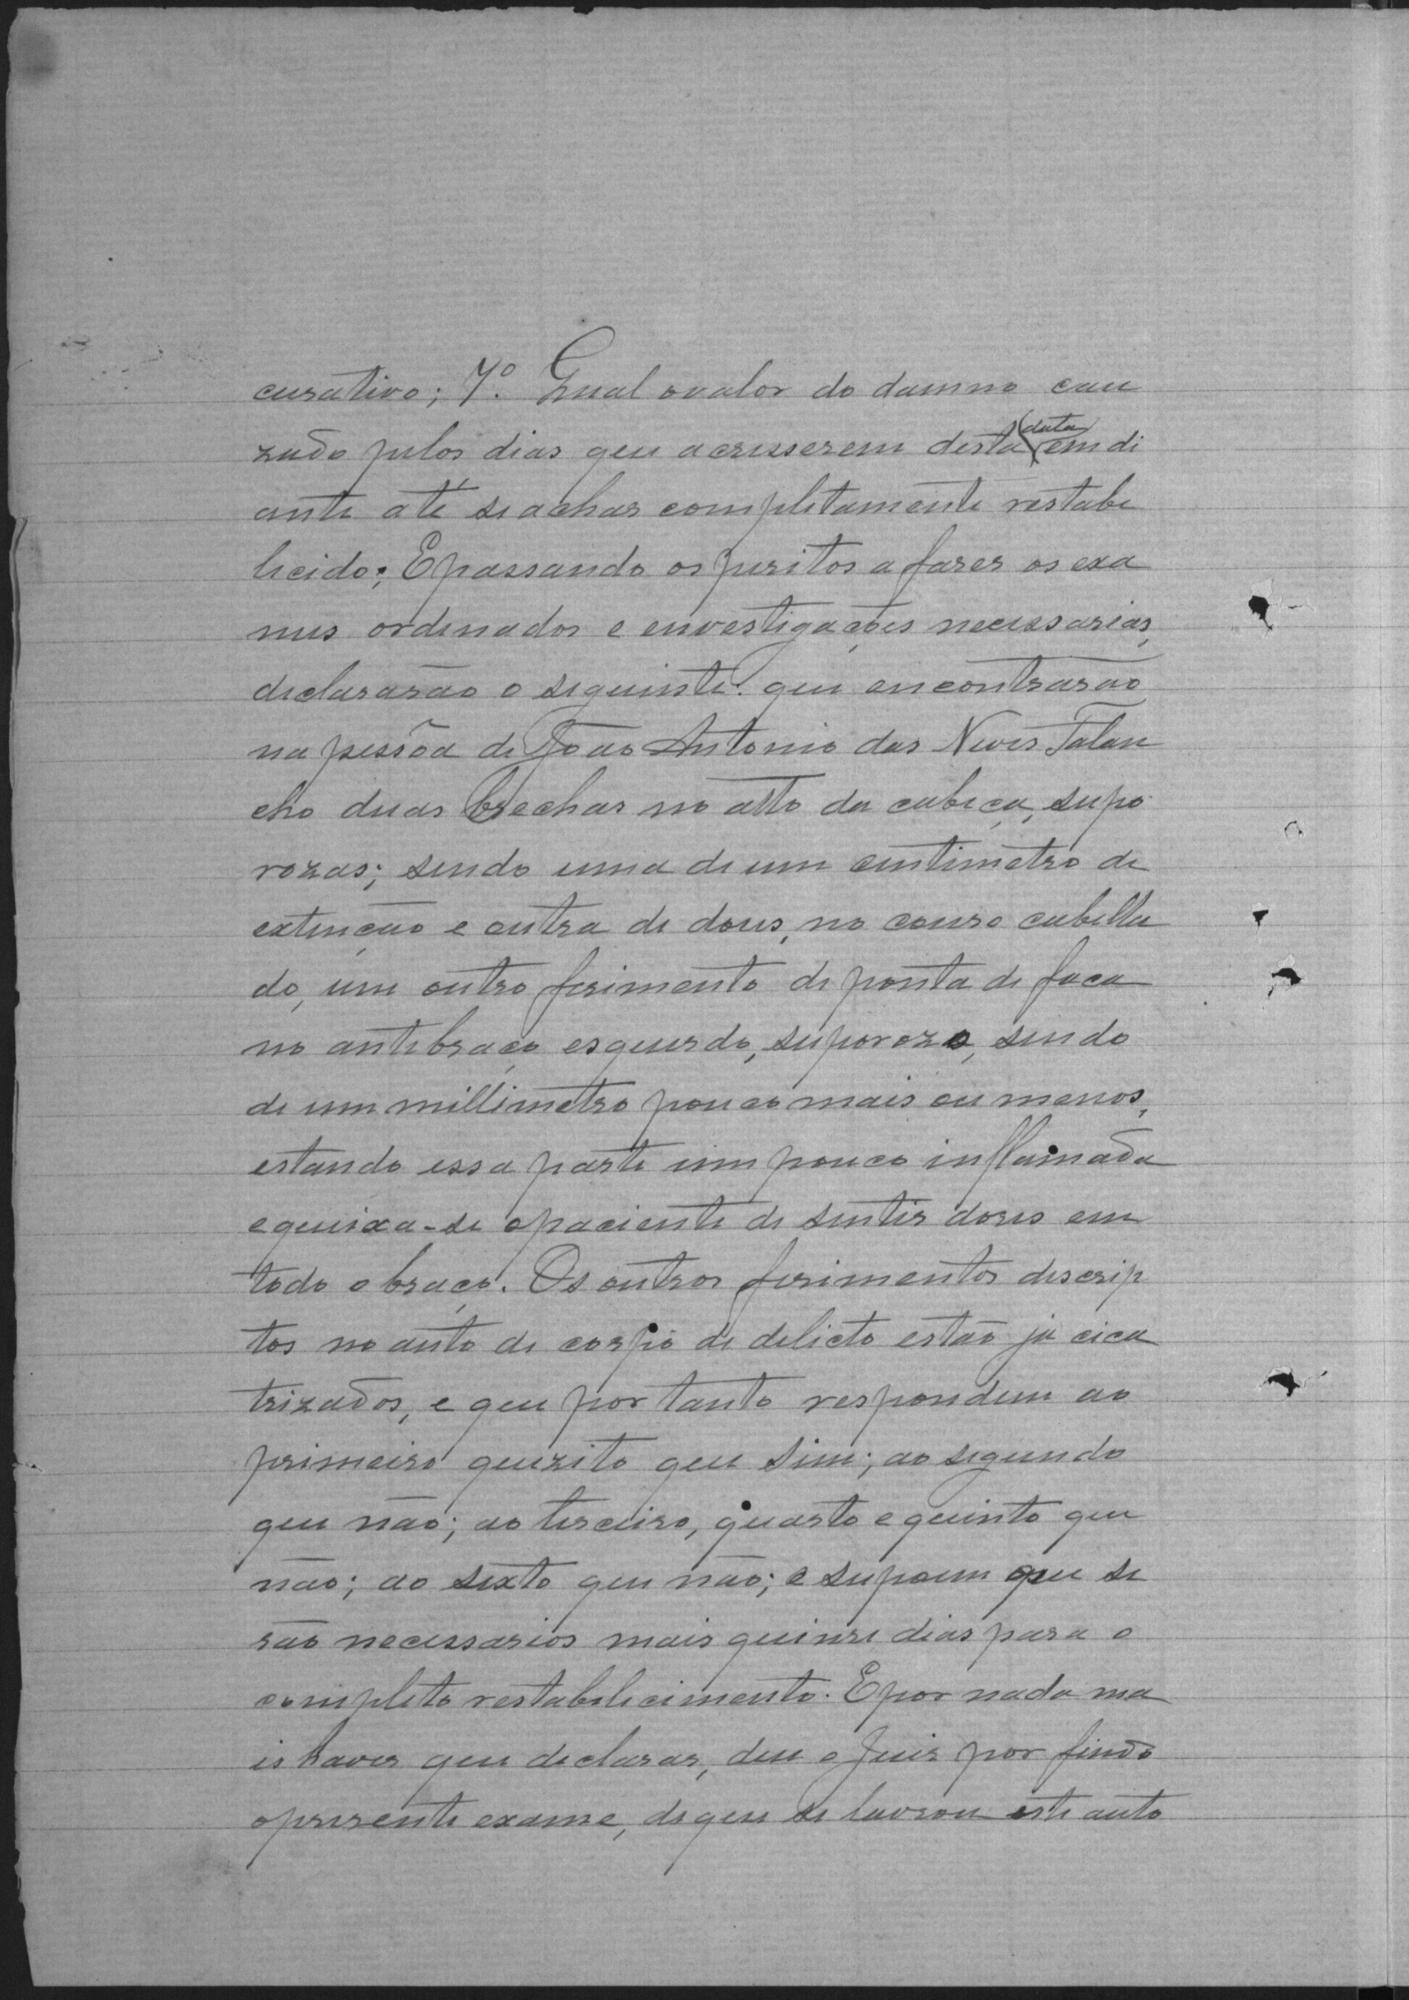 curativo; 7º. Qual o valor do damno cau
zado pelos dias que acresserem desta data em di
ante até se achar completamente restabe
lecido; E passando os peritos a fazer os exa
mes ordenados e envestigações necessarias,
declararão o seguinte: que encontrarão
na pessôa de João Antonio das Neves Talan
cho duas brechas no alto da cabeça, supo
rozas; sendo uma de um centimetro de
extenção e outra de dous, no couro cabellu
do, um outro ferimento de ponta de faca
no antebraço esquerdo, suporozo, sendo
de um millimetro pouco mais ou menos,
estando essa parte um pouco inflamada
e queixa-se o paciente de sentir dores em
todo o braço. Os outros ferimentos descrip
tos no auto de corpo de delicto estão já cica
trizados, e que por tanto respondem ao
primeiro quezito que sim; ao segundo
que não; ao terceiro, quarto e quinto que
não; ao sexto que não; e supoem que se
rão necessarios mais quinze dias para o
completo restabelecimento. E por nada ma
is haver que declarar, deu o Juiz por findo
o presente exame, de que se lavrou este auto